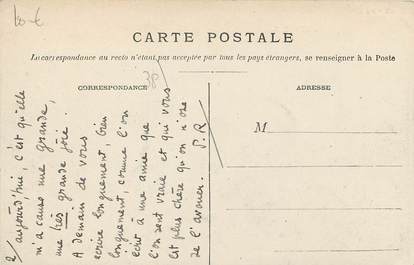 10 €
CARTE POSTALE
La correspondance au recto n'étant pas acceptée par tous les pays étrangers, se renseigner à la Poste
CORRESPONDANCE
ADRESSE
M
2/ aujourd'hui, c'est qu'elle
m'a causé une grande,
une très grande joie.
A demain de vous
écrire longuement, bien
longuement, comme l'on
écrit à une amie que
l'on sent vraie et qui vous
est plus chère qu'on n'ose
de l'avouer. P. R